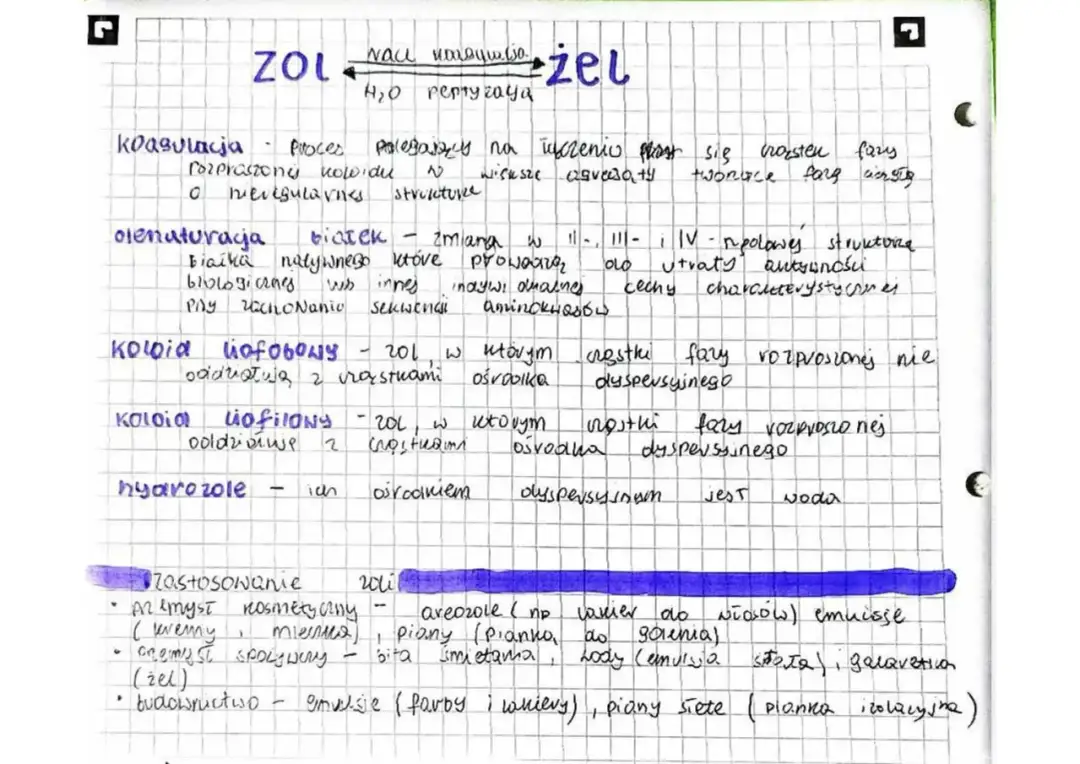 ZOL NaCl koagulacja żel
H₂O peptyzacja
koagulacja - proces polegający na łączeniu się cząstek fazy
rozproszonej koloidu w większe agregaty tworzące fazę ciągłą
o nieregularnej strukturze
denaturacja białek - zmiana w II-, III- i IV-rzędowej strukturze
białka natywnego które prowadzą do utraty aktywności
biologicznej lub innej indywidualnej cechy charakterystycznej
przy zachowaniu sekwencji aminokwasów
koloid liofobowy - zol, w którym cząstki fazy rozproszonej nie
oddziałują z cząstkami ośrodka dyspersyjnego
koloid liofilowy - zol, w którym cząstki fazy rozproszonej
oddziałuje z cząstkami ośrodka dyspersyjnego
hydrozole - ich ośrodkiem dyspersyjnym jest woda
zastosowanie zoli
• przemysł kosmetyczny - areozole (np lakier do włosów) emulsje
(kremy, mleczka), piany (pianka do golenia)
• przemysł spożywczy - bita śmietana, lody (emulsja stała), galaretka
(żel)
• budownictwo - emulsje (farby i lakiery), piany stałe (pianka izolacyjna)